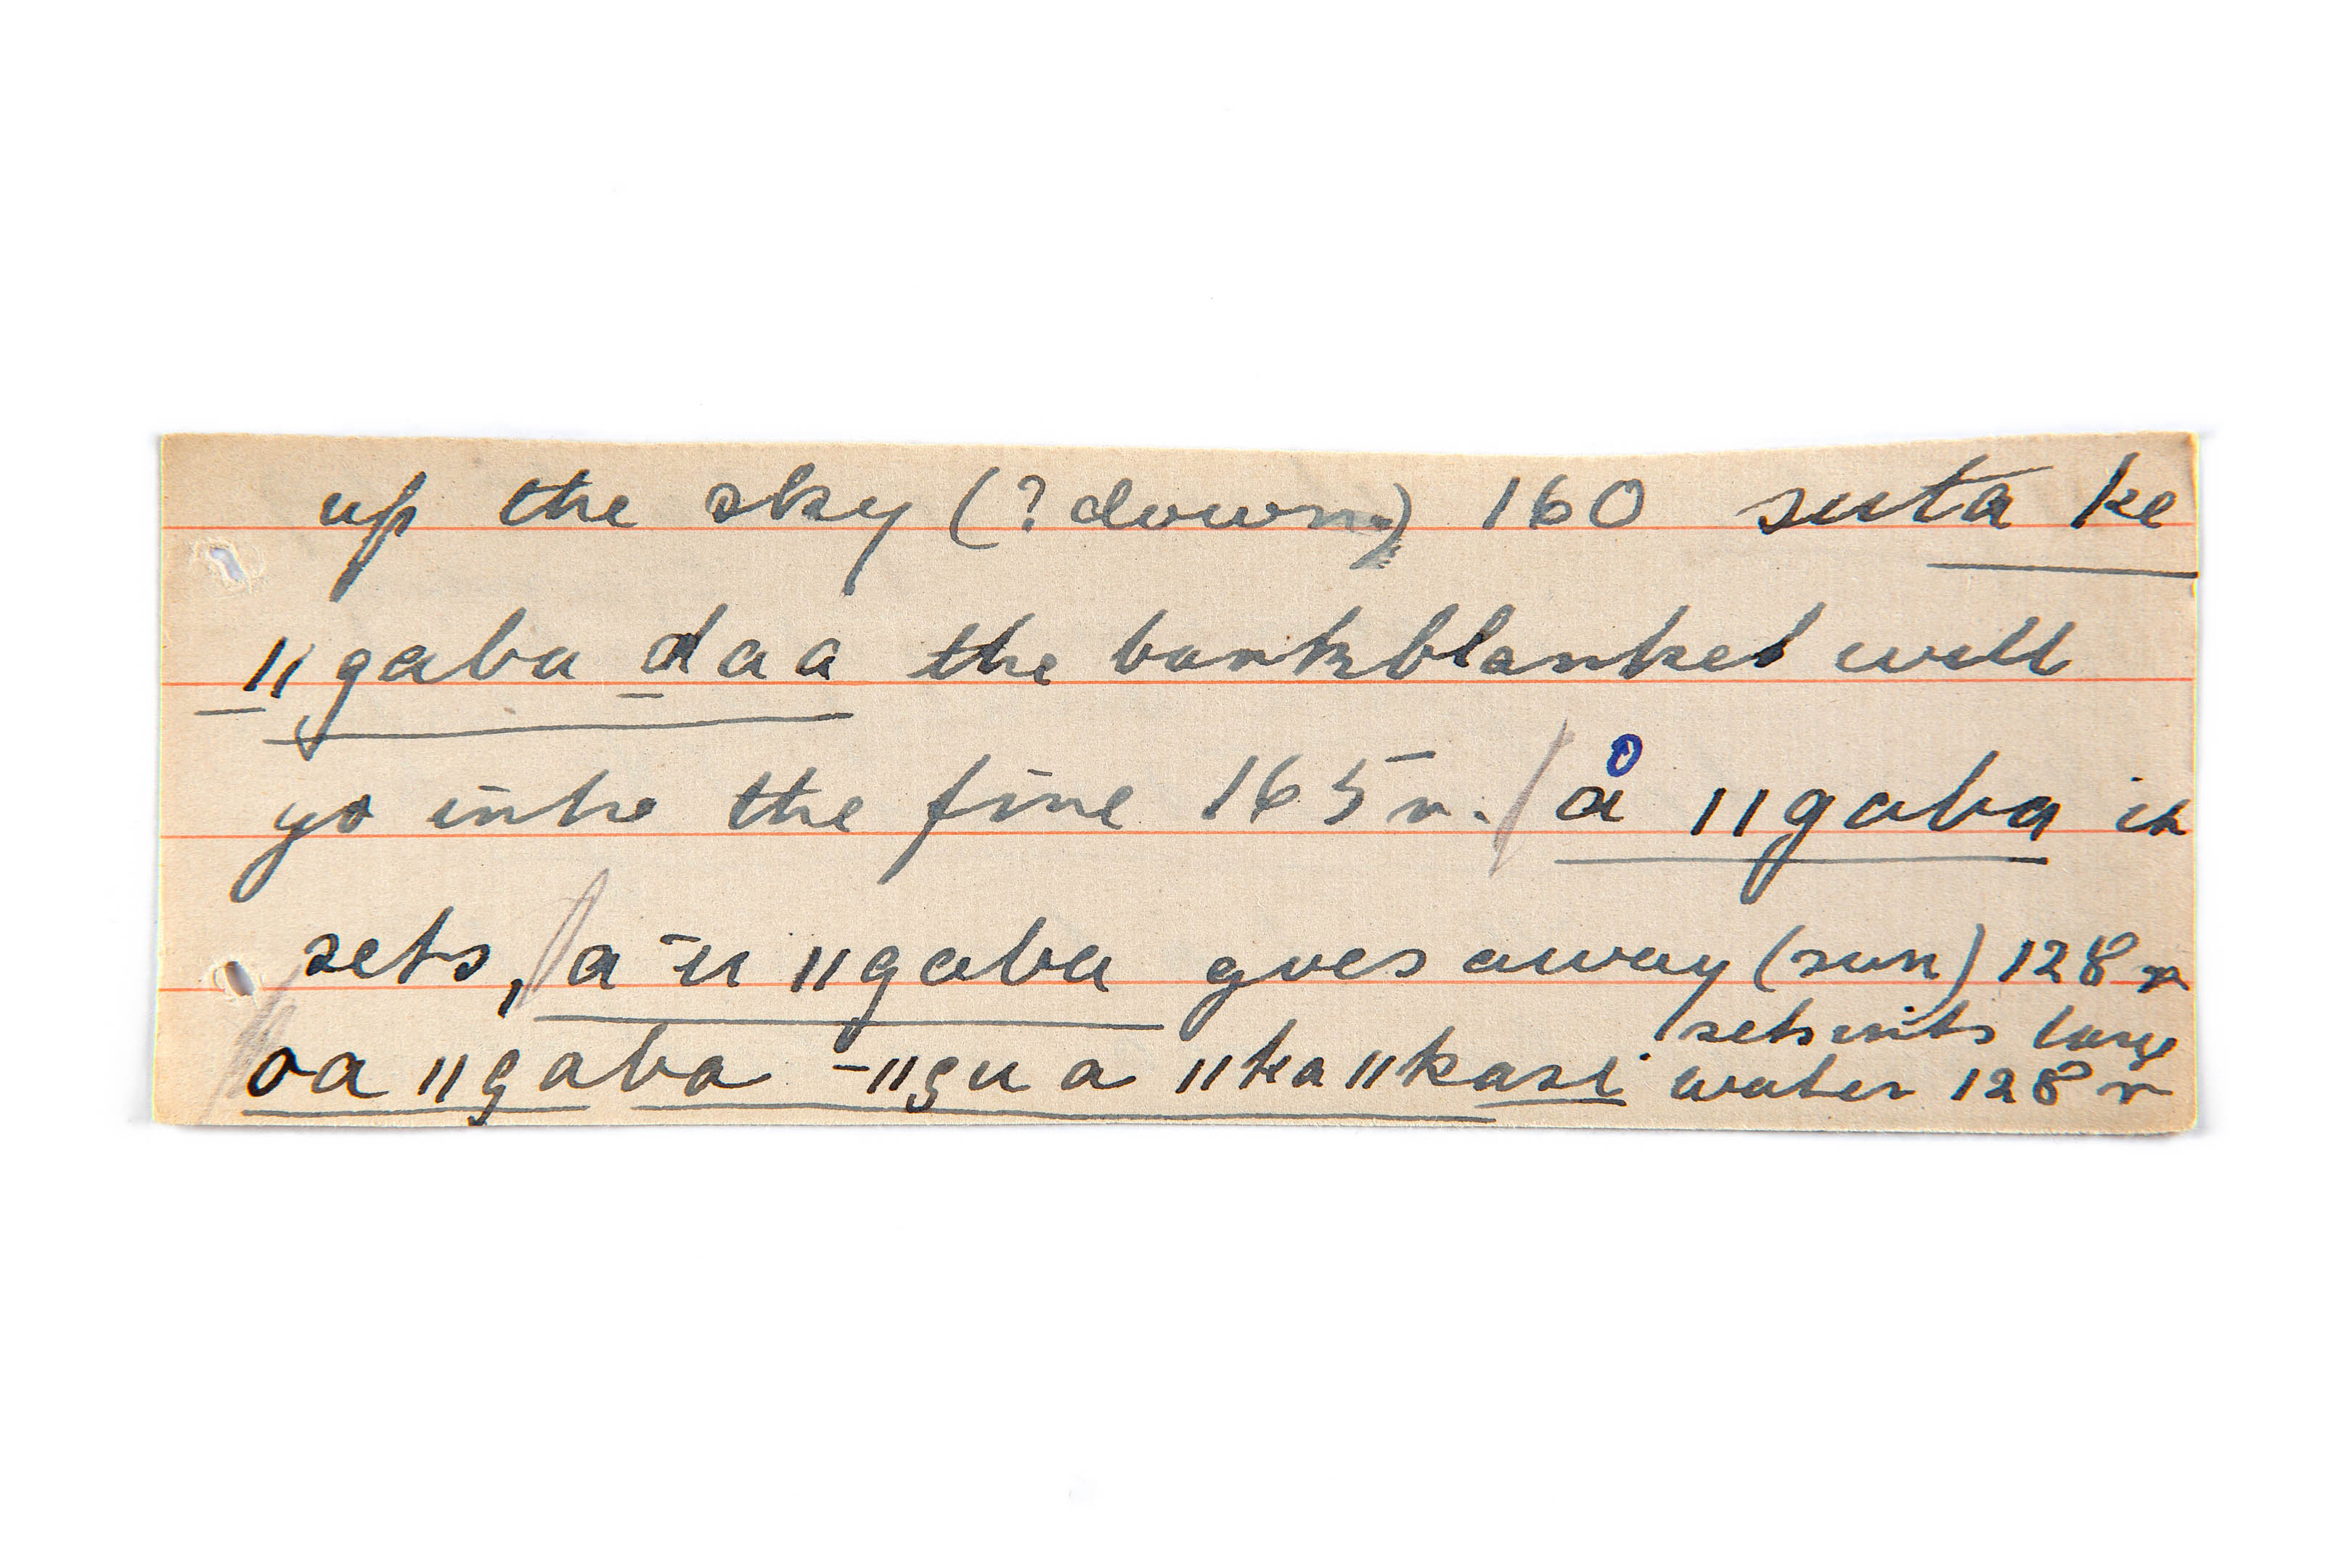 up the sky (? down) 160 suta ke
ǁgaba daa the barkblanket will
go into the fire 165 r. / å ǁgaba it
sets, / a-u ǁgaba goes away (sun) 128 r
oa ǁgaba -ǁgu a ǁkaǁkasi sets in its large
water 128 r